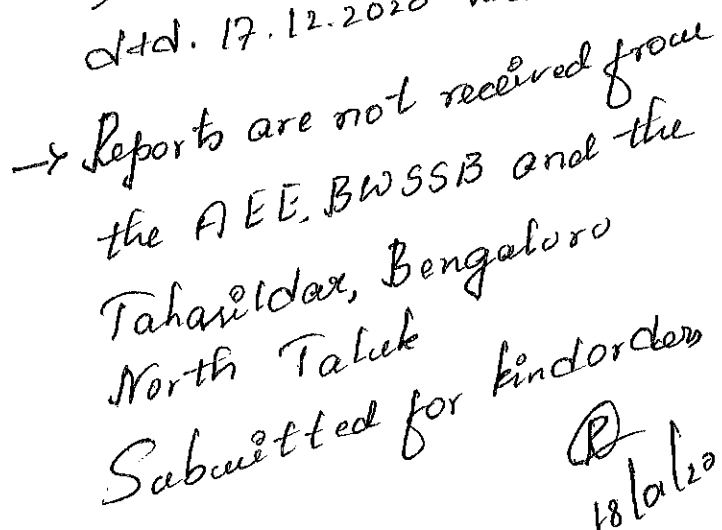 dtd. 17.12.2020
→ Reports are not received from
the AEE, BWSSB and the
Tahasildar, Bengaluru
North Taluk
Submitted for kind orders
18/01/20